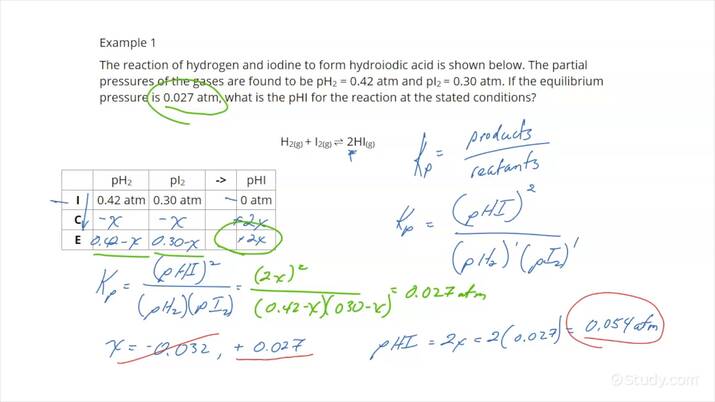 Example 1
The reaction of hydrogen and iodine to form hydroiodic acid is shown below. The partial
pressures of the gases are found to be pH₂ = 0.42 atm and pI₂ = 0.30 atm. If the equilibrium
pressure is 0.027 atm, what is the pHI for the reaction at the stated conditions?
H₂(g) + I₂(g) ⇌ 2HI(g)
Kp = products / reactants
pH₂ pI₂ -> pHI
I 0.42 atm 0.30 atm 0 atm
C -x -x +2x
E 0.42-x 0.30-x +2x
Kp = (pHI)² / (pH₂)¹(pI₂)¹
Kp = (pHI)² / (pH₂)(pI₂) = (2x)² / (0.42-x)(030-x) = 0.027 atm
x = -0.032, + 0.027
pHI = 2x = 2(0.027) = 0.054 atm
Study.com